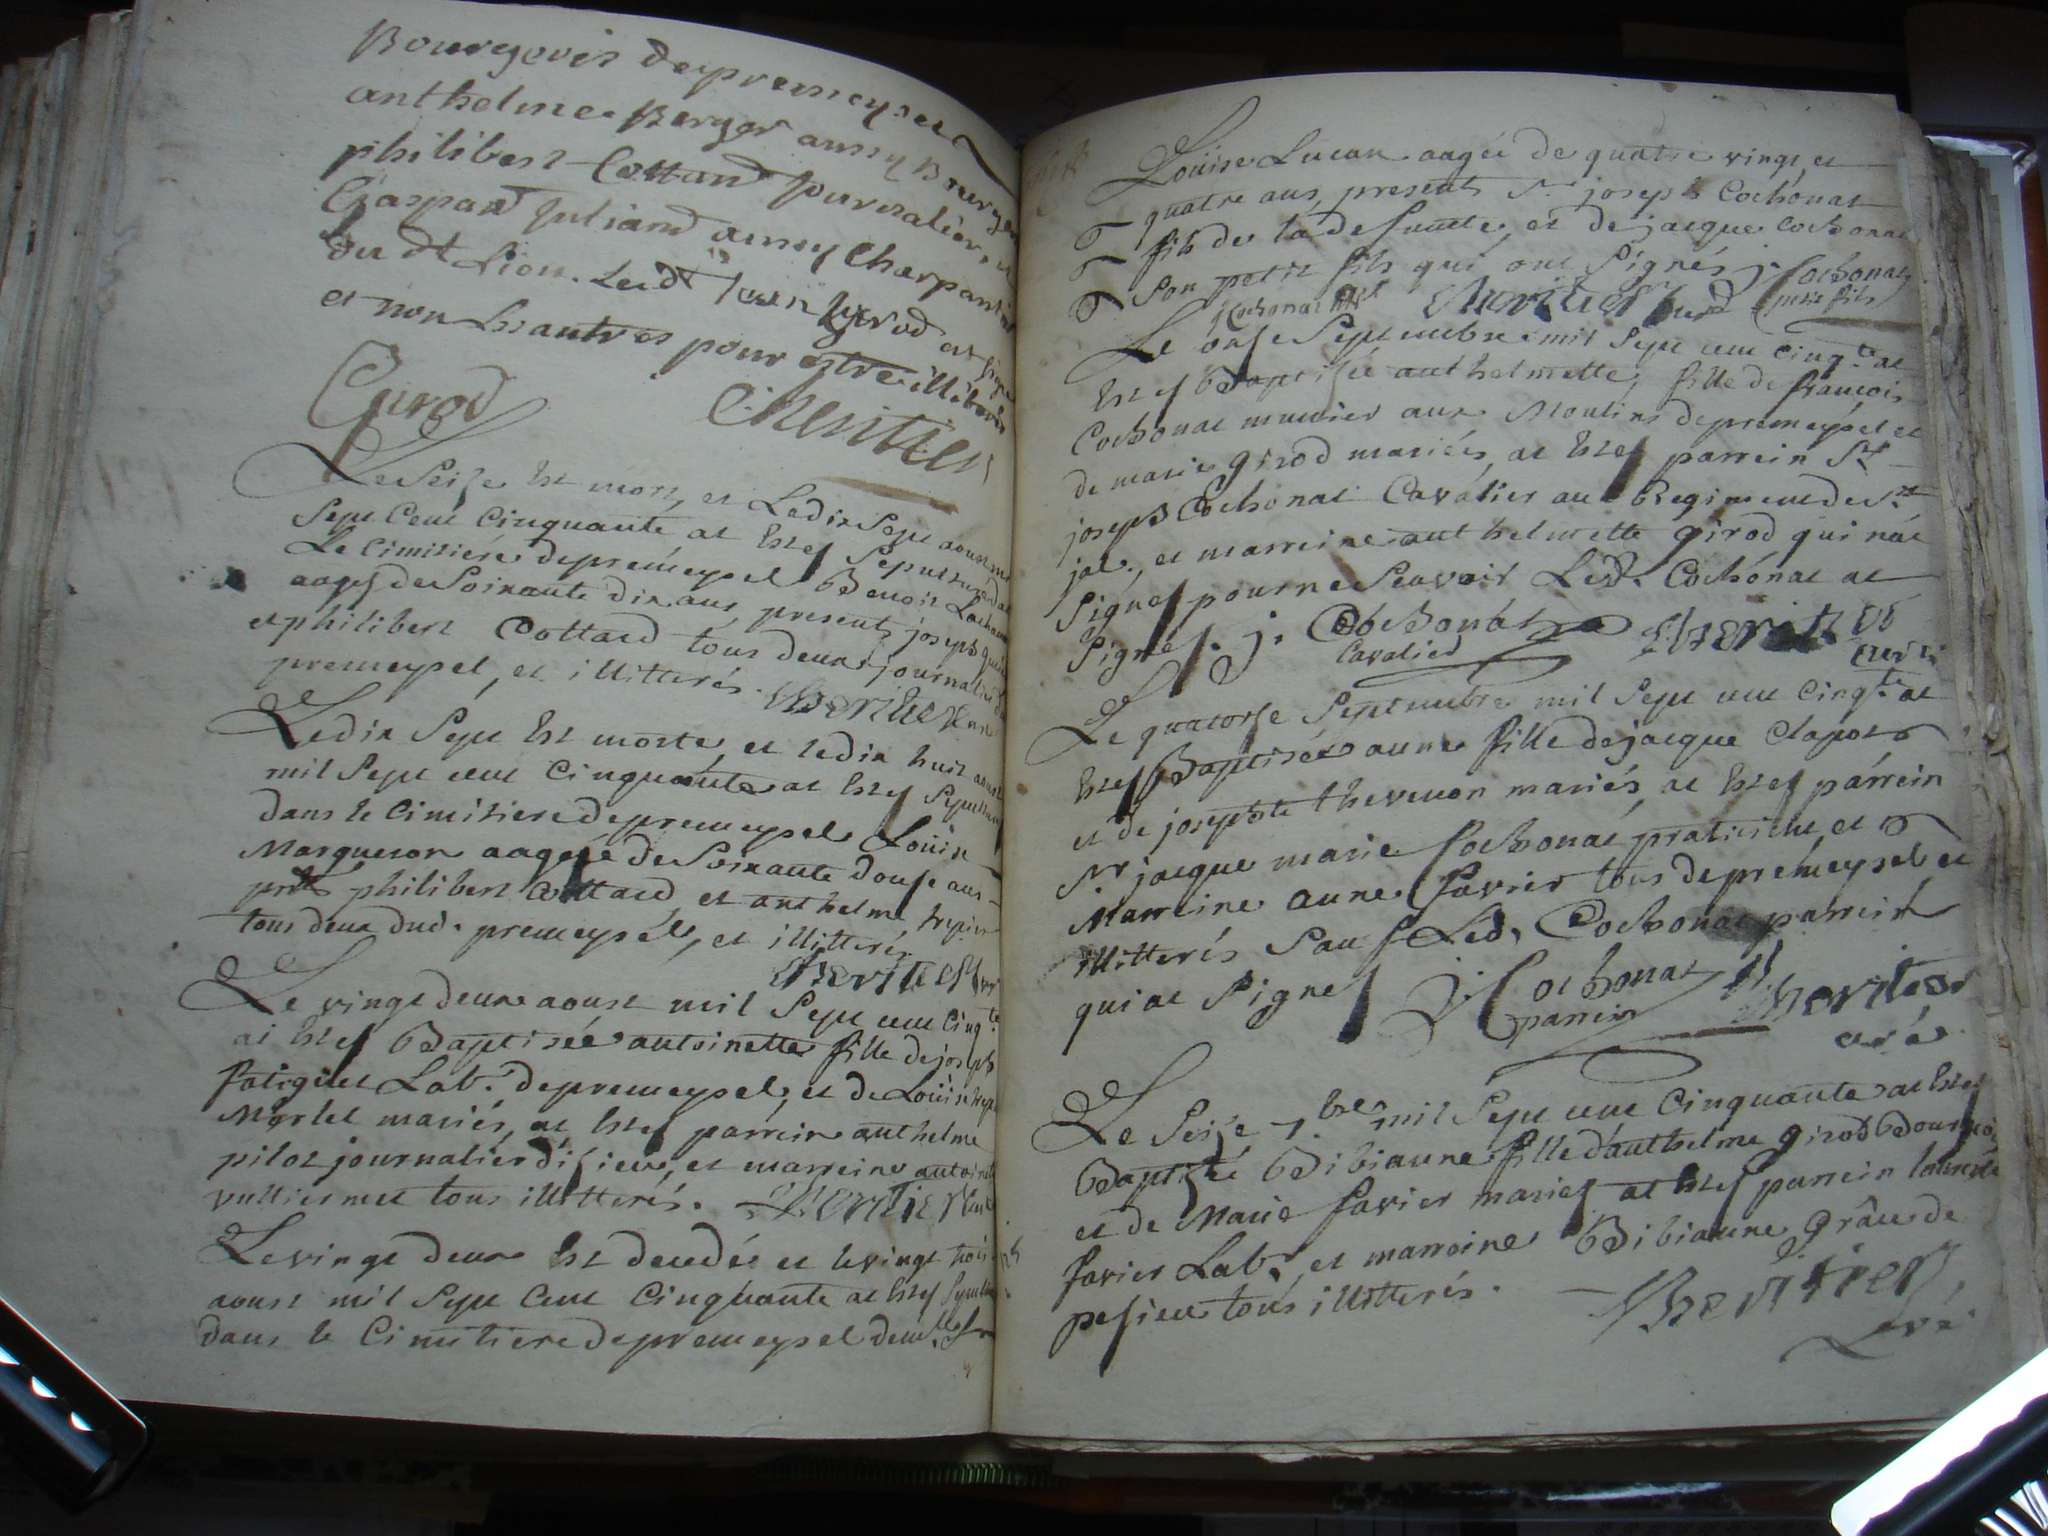 Bourgeois de premeysel
anthelme Berger aussy Bourge
philibert Cottard journalier, et
Gaspard Juliand aussy Charpantier
du dt Lion. Ledt Jean Girod at signé
et non les autres pour estre illiteres
Girod Cheritier
Le Seise Est mort, et Ledix Sept aoust mil
Sept Cent Cinquante at Estes Sepulturé dans
Le Cimitiére de premeysel Benoit
aages de Soixante dix ans, presents joseph
et philibert Cottard tous deux journaliers
premeysel, et illitterés. Cheritier
Ledix Sept Est morte, et ledix huit aoust
mil Sept cent Cinquante at Estes Sepulturé
dans le Cimitiere de premeysel Louise
Margueron aagée de Soixante douse ans
pnts philibert Cottard et anthelme
tous deux dud. premeysel, et illitterés
Cheritier
Le vingt deux aoust mil Sept cent Cinqte
at Estes Baptisée antoinette fille de joseph
Lab. de premeysel, et de Louise
Morlet mariés, at Estes parrein anthelme
pilot journalier d'isieu, et marreine antoinette
vulliermet tous illitterés. Cheritier
Le vingt deux Est decedée et le vingt trois
aoust mil Sept Cent Cinquante at Estes
dans le Cimitiere de premeysel demlle
Louise Lucan aagée de quatre vingt et
quatre ans, presents Sr joseph Cochonat
fils de la defunte, et de jacque Cochonat
Son petit fils qui ont Signés j. Cochonat
j Cochonat Cheritier Curé petit fils
Le onse Septembre mil Sept cent Cinqte at
Estes Baptisée anthelmette, fille de françois
Cochonat munier aux Moulins de premeysel et
de marie girod mariés, at Estes parrein Sr
joseph Cochonat Cavalier au Regiment de St
jal., et marreine anthelmette girod qui n'at
Signes pour ne Scavoir Led. Cochónat at
Signés. j. Cochonat Cheritier
Cavalier curé
Le quatorse Septembre mil Sept cent Cinqte at
Estes Baptisée anne fille de jacque Clapot
et de josephte thevenon mariés, at Estes parrein
Sr jacque marie Cochonat praticient, et
Marreine anne favrier tous de premeysel et
illitterés Sauf Led. Cochonat parrein
qui at Signes j. Cochonat Cheritier
parrein curé
Le Seise 7bre mil Sept cent Cinquante at Estes
Baptisée Bibianne fille d'anthelme girod Bourgeois
et de Marie favier mariés at Estes parrein
favier Lab., et marreine Bibianne grâce de
pesieu tous illitterés. Cheritier
Curé